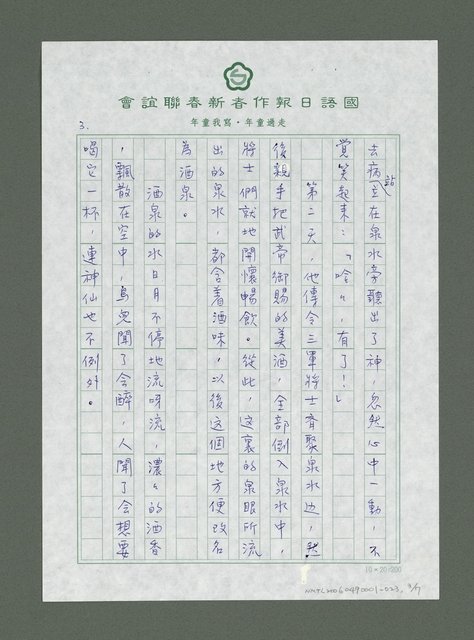 國語日報作者新春聯誼會
走過童年・寫我童年
3.
去病站在泉水旁聽出了神，忽然心中一動，不
覺笑起來：「哈々，有了！」
第二天，他傳令三軍將士齊聚泉水边，然
後親手把武帝御賜的美酒，全部倒入泉水中，
將士們就地開懷暢飲。從此，這裏的泉眼所流
出的泉水，都含着酒味，以後這個地方便改名
為酒泉。
酒泉的水日月不停地流呀流，濃々的酒香
，飄散在空中，鳥兒聞了會醉，人聞了會想要
喝它一杯，連神仙也不例外。
10×20/200
NMTL20060490001-023, 3/7